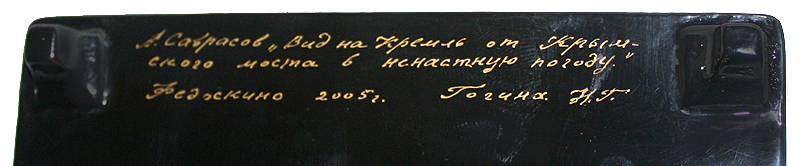 А. Саврасов „Вид на Кремль от Крым-
ского моста в ненастную погоду."
Федоскино 2005г. Гогина Н.Г.